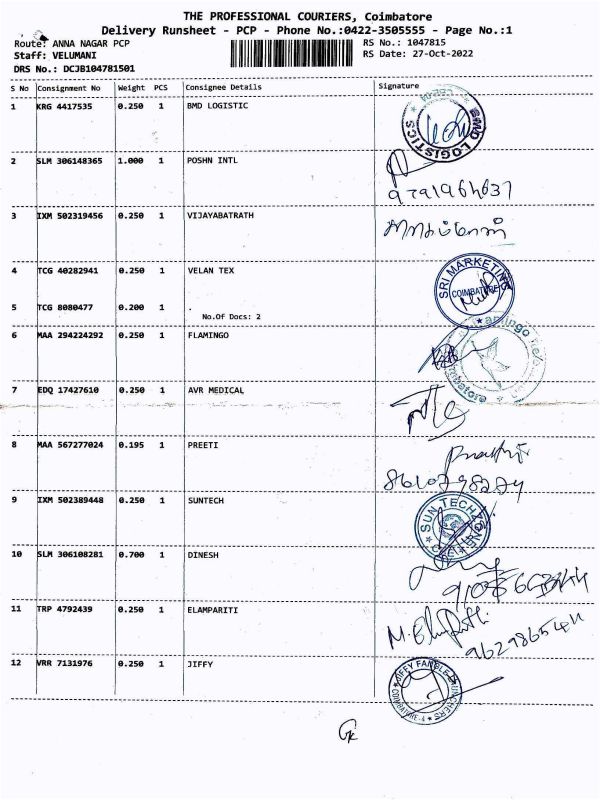 THE PROFESSIONAL COURIERS, Coimbatore
Delivery Runsheet - PCP - Phone No.:0422-3505555 - Page No.:1
Route: ANNA NAGAR PCP RS No.: 1047815
Staff: VELUMANI RS Date: 27-Oct-2022
DRS No.: DCJB104781501
S No Consignment No Weight PCS Consignee Details Signature
1 KRG 4417535 0.250 1 BMD LOGISTIC
BMD LOGISTICS
2 SLM 306148365 1.000 1 POSHN INTL
3 IXM 502319456 0.250 1 VIJAYABATRATH
4 TCG 40282941 0.250 1 VELAN TEX
SRI MARKETING
COIMBATORE
5 TCG 8080477 0.200 1 .
No.Of Docs: 2
6 MAA 294224292 0.250 1 FLAMINGO
7 EDQ 17427610 0.250 1 AVR MEDICAL
8 MAA 567277024 0.195 1 PREETI
9 IXM 502389448 0.250 1 SUNTECH
10 SLM 306108281 0.700 1 DINESH
11 TRP 4792439 0.250 1 ELAMPARITI
12 VRR 7131976 0.250 1 JIFFY
COIMBATORE-4